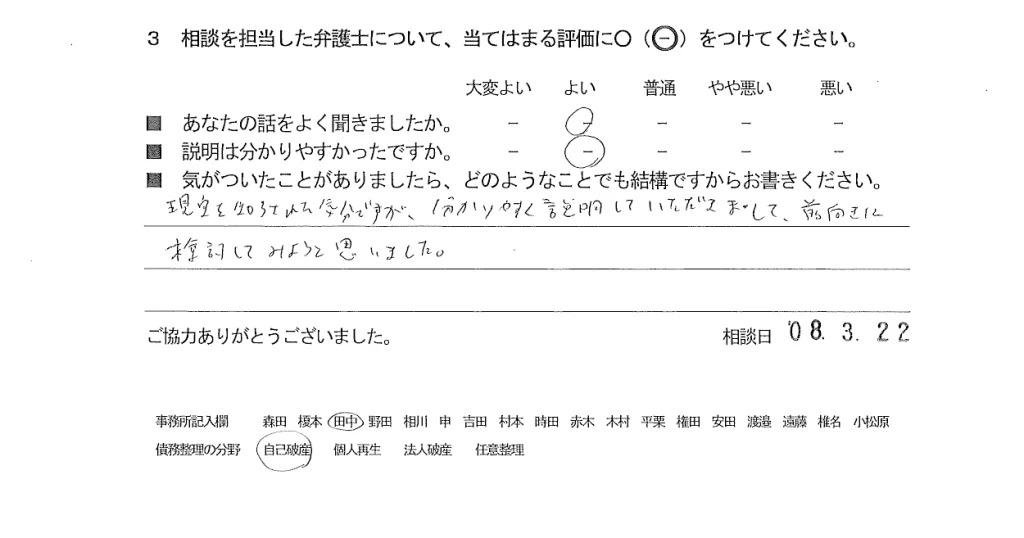 3 相談を担当した弁護士について、当てはまる評価に○（㊀）をつけてください。
大変よい よい 普通 やや悪い 悪い
■ あなたの話をよく聞きましたか。 － － － － －
■ 説明は分かりやすかったですか。 － － － － －
■ 気がついたことがありましたら、どのようなことでも結構ですからお書きください。
現実を知らされた気分ですが、分かりやすく説明していただきまして、前向きに
検討してみようと思いました。
ご協力ありがとうございました。 相談日 '08.3.22
事務所記入欄 森田 榎本 田中 野田 相川 申 吉田 村本 時田 赤木 木村 平栗 権田 安田 渡邉 遠藤 椎名 小松原
債務整理の分野 自己破産 個人再生 法人破産 任意整理